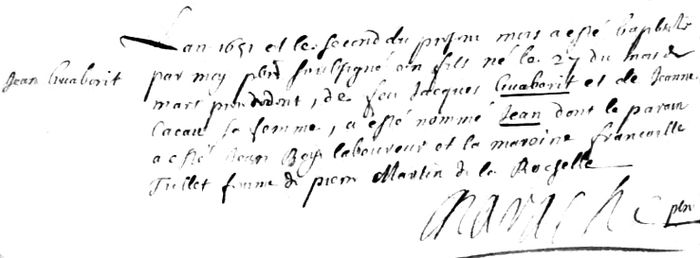 Jean Guaborit
Lan 1651 et le second du presant mois a esté baptisé
par moy pbre soulsigné un fils né le 27 du mois de
mars precedent, de feu Jacques Guaborit et de Jeanne
Cacau sa femme, a esté nommé Jean dont le parain
a esté Jean Boys laboureur et la maraine francoisse
Tillet femme de pierre Martin de la Rochelle
pbre